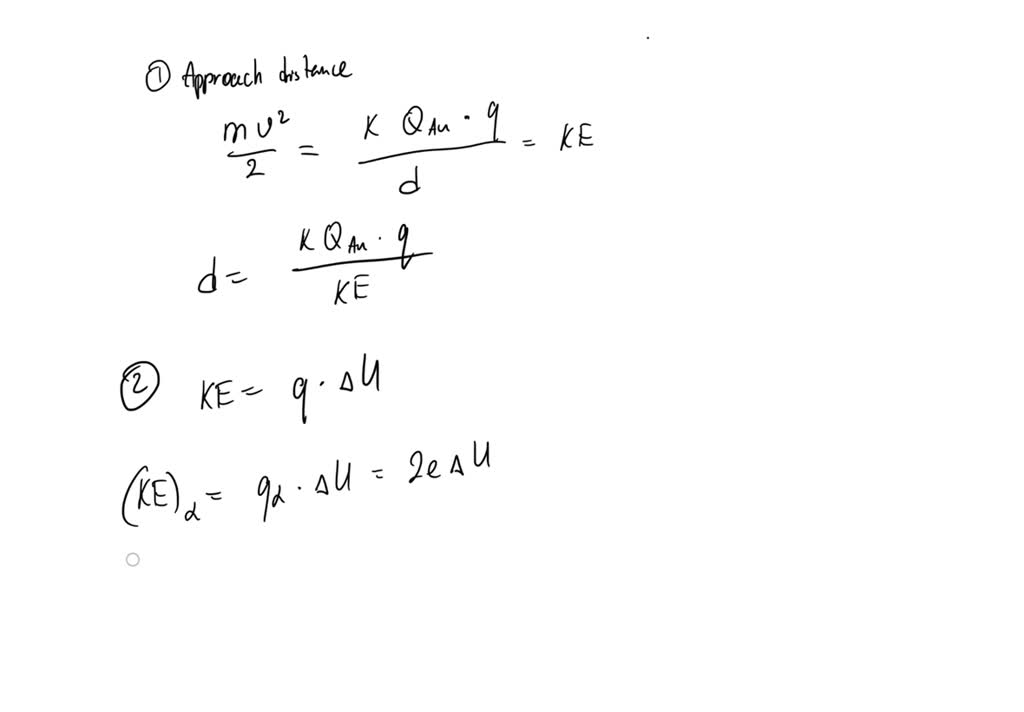 ① Approach distance
mv²/2 = K Q_Au · q / d = KE
d = K Q_Au · q / KE
② KE = q · ΔU
(KE)_α = q_α · ΔU = 2e ΔU